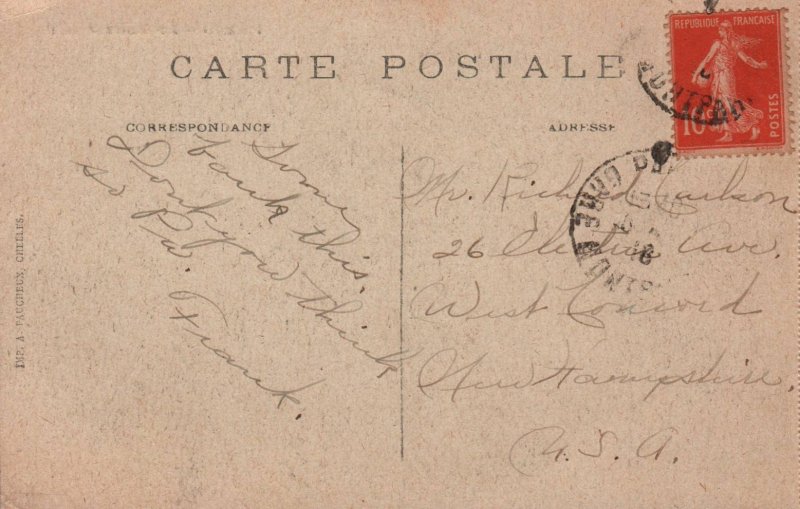 CARTE POSTALE
REPUBLIQUE FRANÇAISE
10 c
POSTES
CORRESPONDANCE
ADRESSE
Some
bank this.
Don't you think
so Pa.
Frank.
Mr. Richard Carlson
26 Ave.
West Concord
New Hampshire.
U.S.A.
IMP. A. FAUCHEUX, CHELLES.
GARE